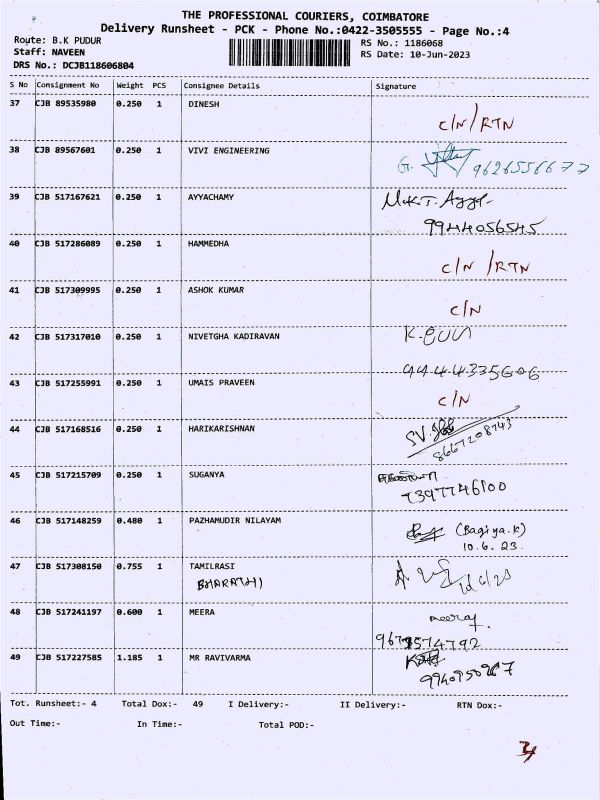 THE PROFESSIONAL COURIERS, COIMBATORE
Delivery Runsheet - PCK - Phone No.:0422-3505555 - Page No.:4
Route: B.K PUDUR RS No.: 1186068
Staff: NAVEEN RS Date: 10-Jun-2023
DRS No.: DCJB118606804
S No Consignment No Weight PCS Consignee Details Signature
37 CJB 89535980 0.250 1 DINESH
C/N/RTN
38 CJB 89567601 0.250 1 VIVI ENGINEERING
G. 9626556677
39 CJB 517167621 0.250 1 AYYACHAMY
M.K.T.
9944056545
40 CJB 517286089 0.250 1 HAMMEDHA
C/N /RTN
41 CJB 517309995 0.250 1 ASHOK KUMAR
C/N
42 CJB 517317010 0.250 1 NIVETGHA KADIRAVAN
9444335606
43 CJB 517255991 0.250 1 UMAIS PRAVEEN
C/N
44 CJB 517168516 0.250 1 HARIKARISHNAN
SV.
8667208743
45 CJB 517215709 0.250 1 SUGANYA
7397746100
46 CJB 517148259 0.480 1 PAZHAMUDIR NILAYAM
(Bagiya.K)
10.6.23.
47 CJB 517308150 0.755 1 TAMILRASI
BHARATHI
48 CJB 517241197 0.600 1 MEERA
meeraj
49 CJB 517227585 1.185 1 MR RAVIVARMA
Tot. Runsheet:- 4 Total Dox:- 49 I Delivery:- II Delivery:- RTN Dox:-
Out Time:- In Time:- Total POD:-